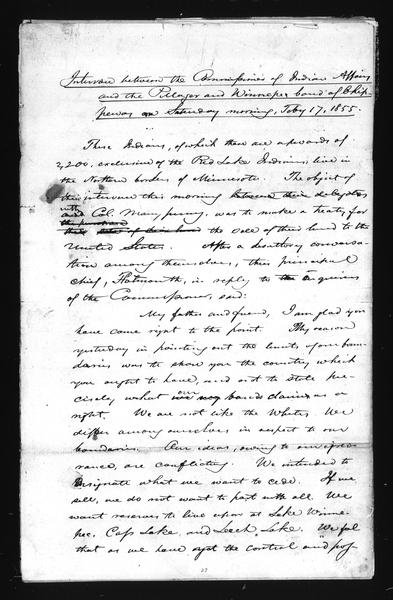 Interview between the Commissioner of Indian Affairs
and the Pillager and Winnepec band of Chip-
pewas on Saturday morning, Feby 17, 1855.
These Indians, of which there are upwards of
2,200, exclusive of the Red Lake Indians, live in
the Northern borders of Minnesota. The object of
the interview this morning between their delegates
with
and Col. Manypenny, was to make a treaty for
the sale of their land to the
United States. After a desultory conversa-
tion among themselves, their principal
chief, Flatmouth, in reply to the inquiries
of the Commissioner, said:
My father and friend, I am glad you
have come right to the point. My reason
yesterday in pointing out the limits of our boun-
daries was to show you the country which
you ought to have, and not to state pre-
cisely what our bands claim as a
right. We are not like the Whites. We
differ among ourselves in respect to our
boundaries. Our ideas, owing to our igno-
rance, are conflicting. We intended to
designate what we want to cede. If we
sell, we do not want to part with all. We
want reserves to live upon at Lake Winne-
pec, Cass Lake, and Leech Lake. We feel
that as we have got the control and pos-